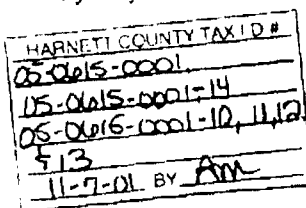 HARNETT COUNTY TAX I D #
05-0615-0001
05-0615-0001-14
05-0616-0001-10, 11, 12
& 13
11-7-01 BY Am